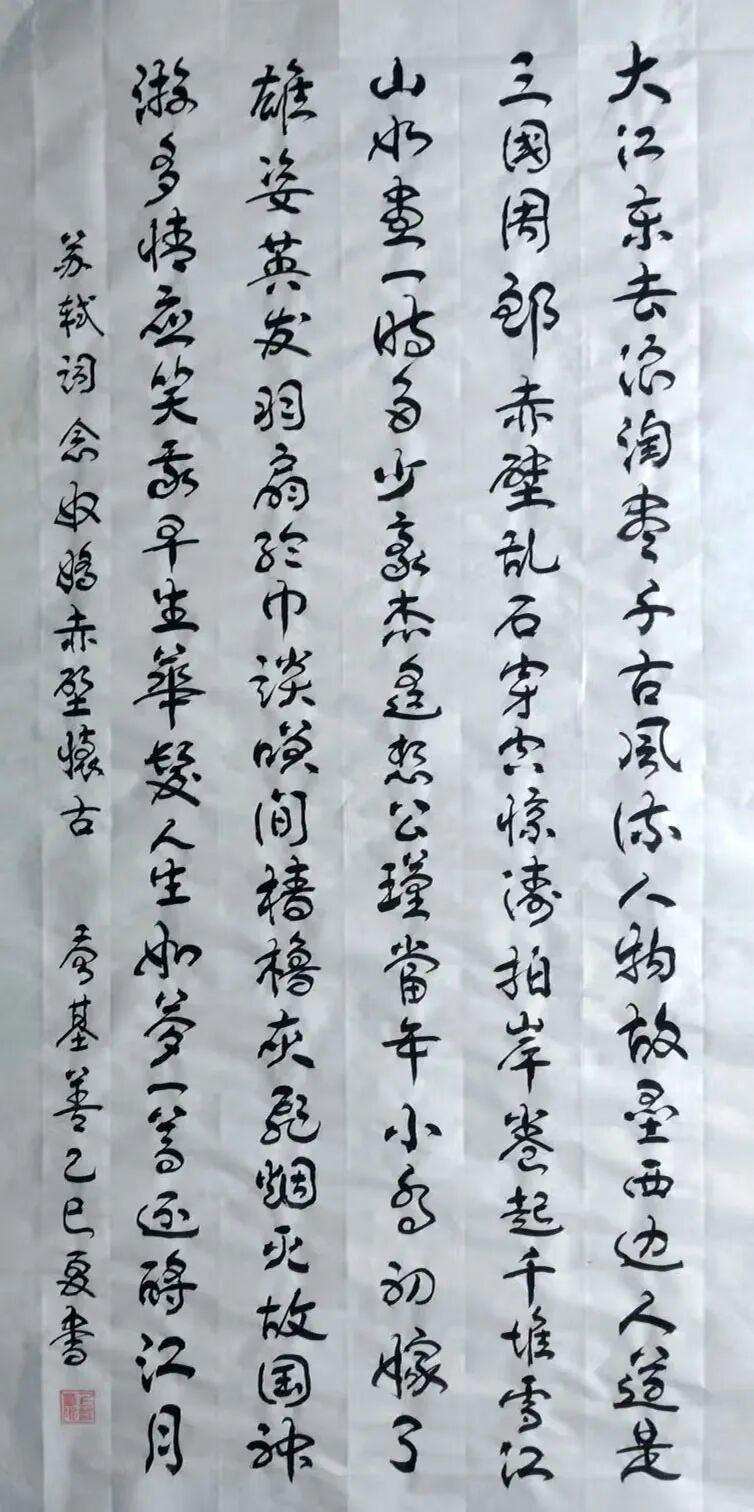 大江东去浪淘尽千古风流人物故垒西边人道是
三國周郎赤壁乱石穿空惊涛拍岸卷起千堆雪江
山如画一時多少豪杰遥想公瑾當年小乔初嫁了
雄姿英发羽扇纶巾談笑间樯橹灰飛烟灭故国神
游多情应笑我早生華髮人生如夢一尊还酹江月
苏轼词念奴娇赤壁懷古 基善乙巳夏書